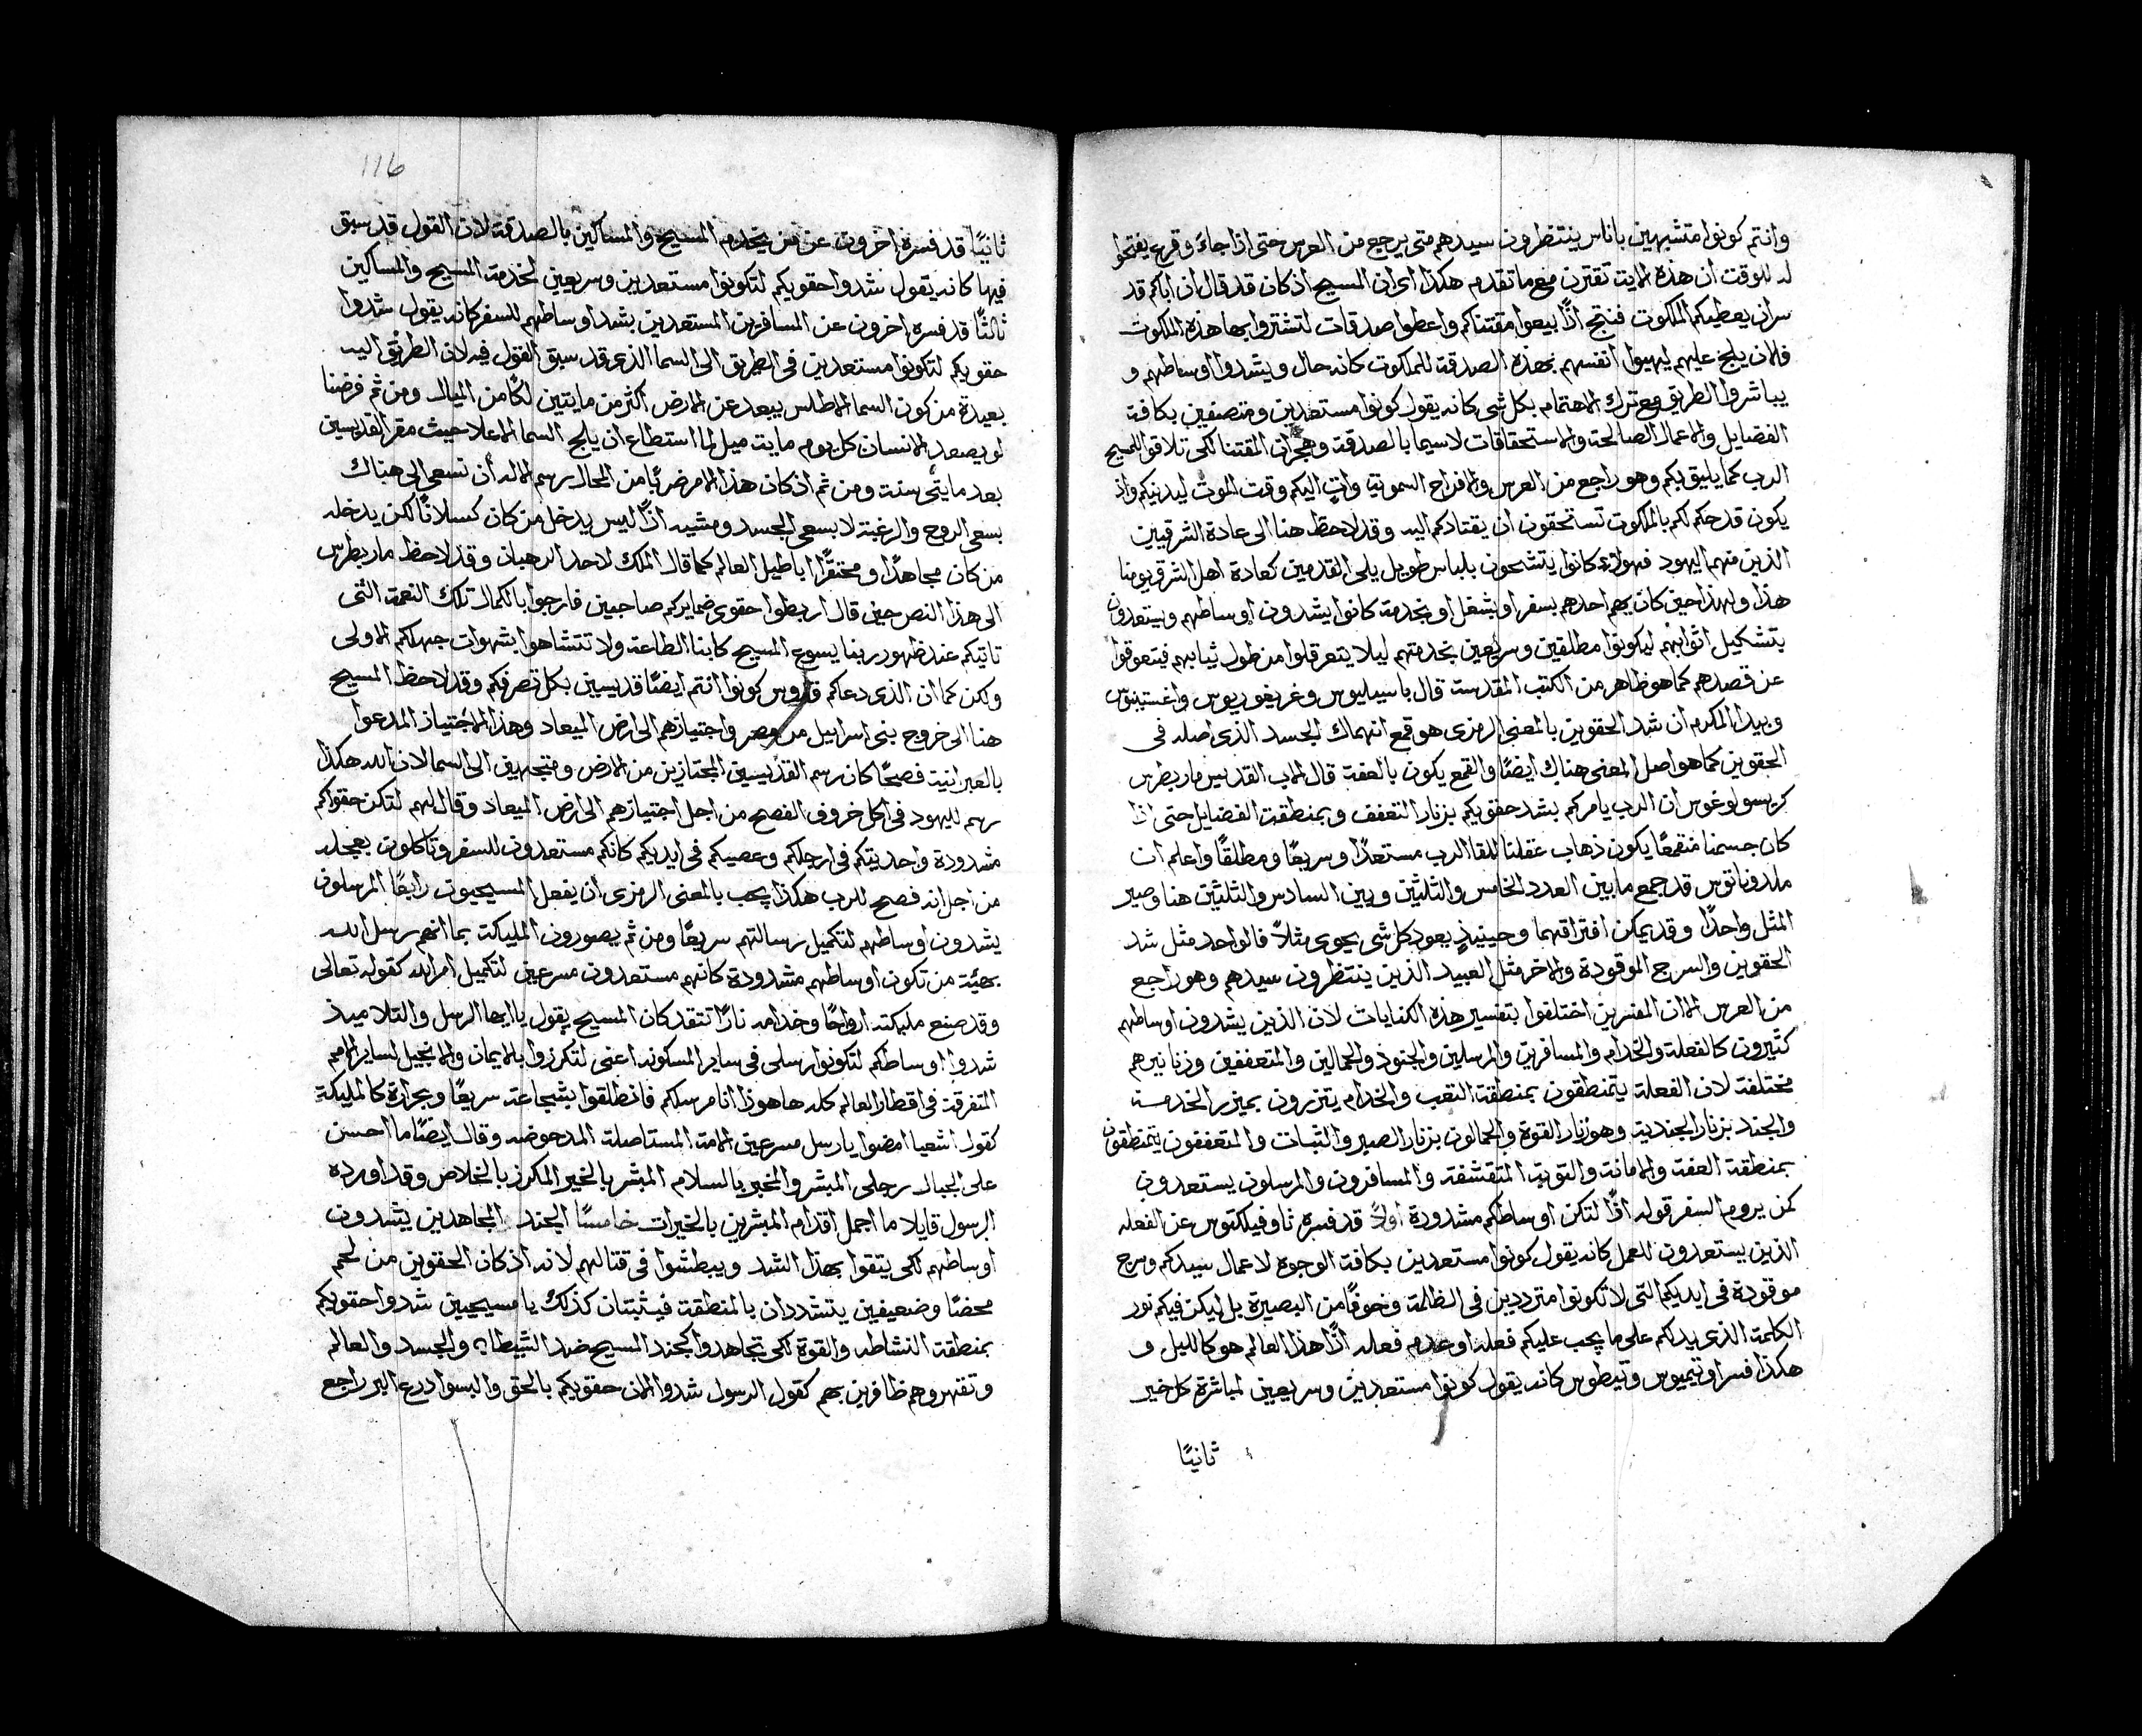 وانتم كونوا متشبهين باناس ينتظرون سيدهم متى يرجع من العرس حتى اذا جاءَ وقرع يفتحوا
له للوقت ان هذه الايت تقترن مع ما تقدم هكذا اي ان المسيح اذ كان قد قال ان اباكم قد
سر ان يعطيكم الملكوت فنتج اذًا بيعوا مقتناكم واعطوا صدقات لتشتروا بها هذه الملكوت
فالان يلج عليهم ليهيوا انفسهم بهذه الصدقة للملكوت كانه حال ويشدوا اوساطهم و
يباشروا الطريق مع ترك الاهتمام بكل شي كانه يقول كونوا مستعدين ومتصفين بكافة
الفضايل والاعمال الصالحة والاستحقاقات لاسيما بالصدقة وهجران المقتنا لكي تلاقوا المسيح
الرب كما يليق بكم وهو راجع من العرس والافراح السموية واتٍ اليكم وقت الموت ليدنيكم واذ
يكون قد حكم لكم بالملكوت تستحقون ان يقتادكم اليه وقد لاحظ هنا الى عادة الشرقيين
الذين منهم اليهود فهولاء كانوا يتشحون بلباس طويل يلي القدمين كعادة اهل الشرق يومنا
هذا ولهذا حين كان يهم احدهم بسفر او بشغل او بخدمة كانوا يشدون اوساطهم ويستعدون
بتشكيل اثوابهم ليكونوا مطلقين وسريعين بخدمتهم ليلا يتعرقلوا من طول ثيابهم فيتعوقوا
عن قصدهم كما هو ظاهر من الكتب المقدسة قال باسيليوس وغريغوريوس واغستينوس
وبيدا المكرم ان شد الحقوين بالمعني الرمزي هو قمع انهماك الجسد الذي اصله في
الحقوين كما هو اصل المعني هناك ايضًا والقمع يكون بالعفة قال الاب القديس مار بطرس
كريسولوغوس ان الرب يامركم بشد حقويكم بزنار التعفف وبمنطقة الفضايل حتى اذا
كان جسمنا منقمعًا يكون ذهاب عقلنا للقا الرب مستعدًا وسريعًا ومطلقًا واعلم ان
ملدوناتوس قد جمع ما بين العدد الخامس والثلثين وبين السادس والثلثين هنا وصير
المثل واحدًا وقد يمكن افتراقهما وحينيذٍ يعود كل شي يحوي مثلاً فالواحد مثل شد
الحقوين والسرج الموقودة والاخر مثل العبيد الذين ينتظرون سيدهم وهو راجع
من العرس الا ان المفسرين اختلفوا بتفسير هذه الكنايات لان الذين يشدون اوساطهم
كثيرون كالفعلة والخدام والمسافرين والمرسلين والجنود والحمالين والمتعففين وزنانيرهم
مختلفة لان الفعلة يتمنطقون بمنطقة التعب والخدام يتزرون بميزر الخدمة
والجند بزنار الجندية وهو زنار القوة والحمالون بزنار الصبر والثبات والمتعففون يتمنطقون
بمنطقة العفة والامانة والتوبة المتقشفة والمسافرون والمرسلون يستعدون
كمن يروم السفر قوله اذًا لتكن اوساطكم مشدودة اولاً قد فسره ثاوفيلكتوس عن الفعله
الذين يستعدون للعمل كانه يقول كونوا مستعدين بكافة الوجوه لاعمال سيدكم وسرج
موقودة في ايديكم التي لا تكونوا مترددين في الظلمة وخوفًا من البصيرة بل ليكن فيكم نور
الكلمة الذي يدلكم على ما يجب عليكم فعله او عدم فعله اذًا هذا العالم هو كالليل و
هكذا فسر اوتيميوس وتيطوس كانه يقول كونوا مستعدين وسريعين لمباشرة كل خير
ثانيًا
116
ثانيًا قد فسره اخرون عن من يخدم المسيح والمساكين بالصدقة لان القول قد سبق
فيها كانه يقول شدوا حقويكم لتكونوا مستعدين وسريعين لخدمة المسيح والمساكين
ثالثًا قد فسره اخرون عن المسافرين المستعدين بشد اوساطهم للسفر كانه يقول شدوا
حقويكم لتكونوا مستعدين في الطريق الى السما الذي قد سبق القول فيه لان الطريق اليه
بعيدة من كون السما الاطلس يبعد عن الارض اكثر من مايتين لكًا من الميال ومن ثم فرضنا
لو يصعد الانسان كل يوم ماية ميل لما استطاع ان يلج السما الاعلا حيث مقر القديسين
بعد مايتي سنة ومن ثم اذ كان هذا الامر ضربًا من المحال رسم الله أن نسعى الى هناك
بسعي الروح والرغبة لا بسعي الجسد ومشيه اذًا ليس يدخل من كان كسلانًا لكن يدخله
من كان مجاهدًا ومحتقرًا اباطيل العالم كما قال الملك لاحد الرهبان وقد لاحظ مار بطرس
الى هذا النص حين قال اربطوا حقوي ضمايركم صاحيين فارجوا بالكمال تلك النعمة التي
تاتيكم عند ظهور ربنا يسوع المسيح كابنا الطاعة ولا تتشاهوا بشهوات جهلكم الاولى
ولكن كما ان الذي دعاكم قدوس كونوا انتم ايضًا قديسين بكل تصرفكم وقد لاحظ المسيح
هنا الى خروج بني اسراييل من مصر واجتيازهم الى ارض الميعاد وهذا الاجتياز المدعوا
بالعبرانية فصحًا كان رسم القديسين المجتازين من الارض ومتجهين الى السما لان الله هكذا
رسم لليهود في اكل خروف الفصح من اجل اجتيازهم الى ارض الميعاد وقال لهم لتكن حقواكم
مشدودة واحديتكم في ارجلكم وعصيكم في ايديكم كانكم مستعدون للسفر وتاكلون بعجله
من اجل انه فصح للرب هكذا يجب بالمعني الرمزي ان يفعل المسيحيون رابعًا المرسلون
يشدون اوساطهم لتكميل رسالتهم سريعًا ومن ثم يصورون المليكة بما انهم رسل الله
بهيئة من تكون اوساطهم مشدودة كانهم مستعدون مسرعين لتكميل امر الله كقوله تعالى
وقد صنع مليكته ارواحًا وخدامه نارًا تتقد كان المسيح يقول يا ايها الرسل والتلاميذ
شدوا اوساطكم لتكونوا رسلي في ساير المسكونه اعني لتكرزوا بالايمان والانجيل لساير الامم
المتفرقة في اقطار العالم كله ها هوذا انا مرسلكم فانطلقوا بشجاعة سريعًا وبحرارة كالمليكة
كقول اشعيا امضوا يا رسل مسرعين الامة المستاصلة المدحوضه وقال ايضًا ما احسن
على الجبال رجلي المبشر والمخبر بالسلام المبشر بالخير المكرز بالخلاص وقد اورده
الرسول قايلا ما اجمل اقدام المبشرين بالخيرات خامسًا الجند المجاهدين يشدون
اوساطهم لكي يتقوا بهذا الشد ويبطشوا في قتالهم لانه اذ كان الحقوين من لحم
محضًا وضعيفين يتشددان بالمنطقة فيثبتان كذلك يا مسيحيين شدوا حقويكم
بمنطقة النشاطه والقوة لكي تجاهدوا كجند المسيح ضد الشيطان والجسد والعالم
وتقهروهم ظافرين بهم كقول الرسول شدوا الان حقويكم بالحق والبسوا درع البر راجع